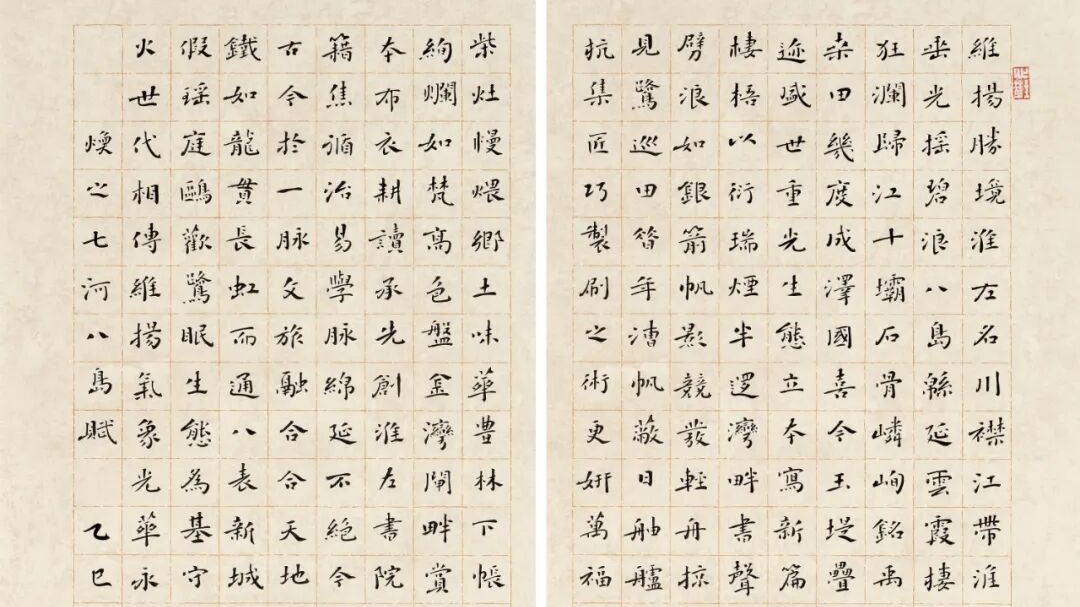 維揚勝境淮左名川襟江帶淮
垂光搖碧浪八島緜延雲霞棲
狂瀾歸江十壩石骨嶙峋銘禹
桒田幾度成澤國喜今玉堤疊
迹盛世重光生態立本寫新篇
棲梧以衍瑞煙半邐灣畔書聲
劈浪如銀箭帆影競發輕舟掠
見鷺巡田昝年漕帆蔽日舳艫
杭集匠巧製刷之術更妍萬福
柴灶慢煨鄉土味華豊林下帳
絢爛如梵高色盤金灣閘畔賞
本布衣耕讀承先創淮左書院
籍焦循治易學脉綿延不絕今
古今於一脉文旅融合合天地
鐵如龍貫長虹而通八表新城
假瑶庭鷗歡鷺眠生態為基守
火世代相傳維揚氣象光華永
煥之七河八島賦 乙巳